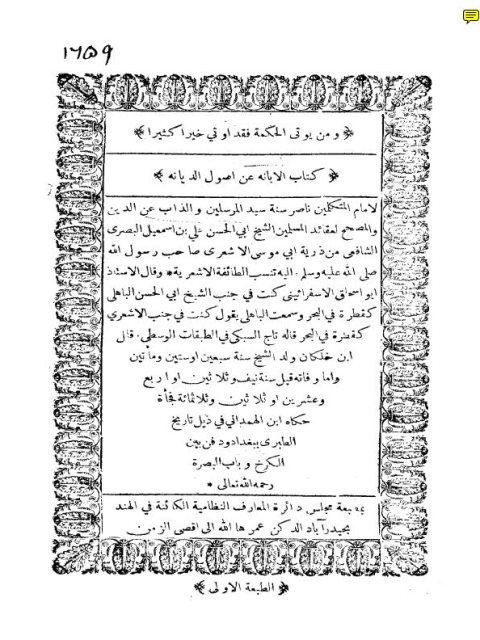 ١٦٥٩
ومن يوتى الحكمة فقد اوتي خيرا كثيرا
كتاب الابانه عن اصول الديانه
لامام المتكلمين ناصر سنة سيد المرسلين والذاب عن الدين
والمصحح لعقائد المسلمين الشيخ ابي الحسن علي بن اسمعيل البصرى
الشافعى من ذرية ابي موسى الاشعرى صاحب رسول الله
صلى الله عليه وسلم، اليه تنسب الطائفة الاشعرية * وقال الاستاذ
ابو اسحاق الاسفرائينى كنت في جنب الشيخ ابي الحسن الباهلى
كقطرة في البحر وسمعت الباهلى يقول كنت في جنب الاشعري
كقطرة في البحر قاله تاج السبكى في الطبقات الوسطى، قال
ابن خلكان ولد الشيخ سنة سبعين او ستين ومأتين
واما وفاته قبل سنة نيف وثلاثين او اربع
وعشرين او ثلاثين وثلاثمائة فجأة
حكاه ابن الهمدانى في ذيل تاريخ
الطبرى ببغداد ودفن بين
الكرخ وباب البصرة
رحمه الله تعالى *
بمطبعة مجلس دائرة المعارف النظامية الكائنة في الهند
بحيدرآباد الدكن عمرها الله الى اقصى الزمن
الطبعة الاولى